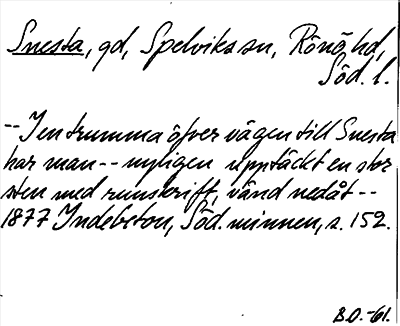 Snesta, gd, Spelviks sn, Rönö hd,
Söd. l.
-- I en trumma öfver vägen till Snesta
har man -- nyligen upptäckt en stor
sten med runskrift, vänd nedåt --
1877 Indebetou, Söd. minnen, s. 152.
B.O. -61.